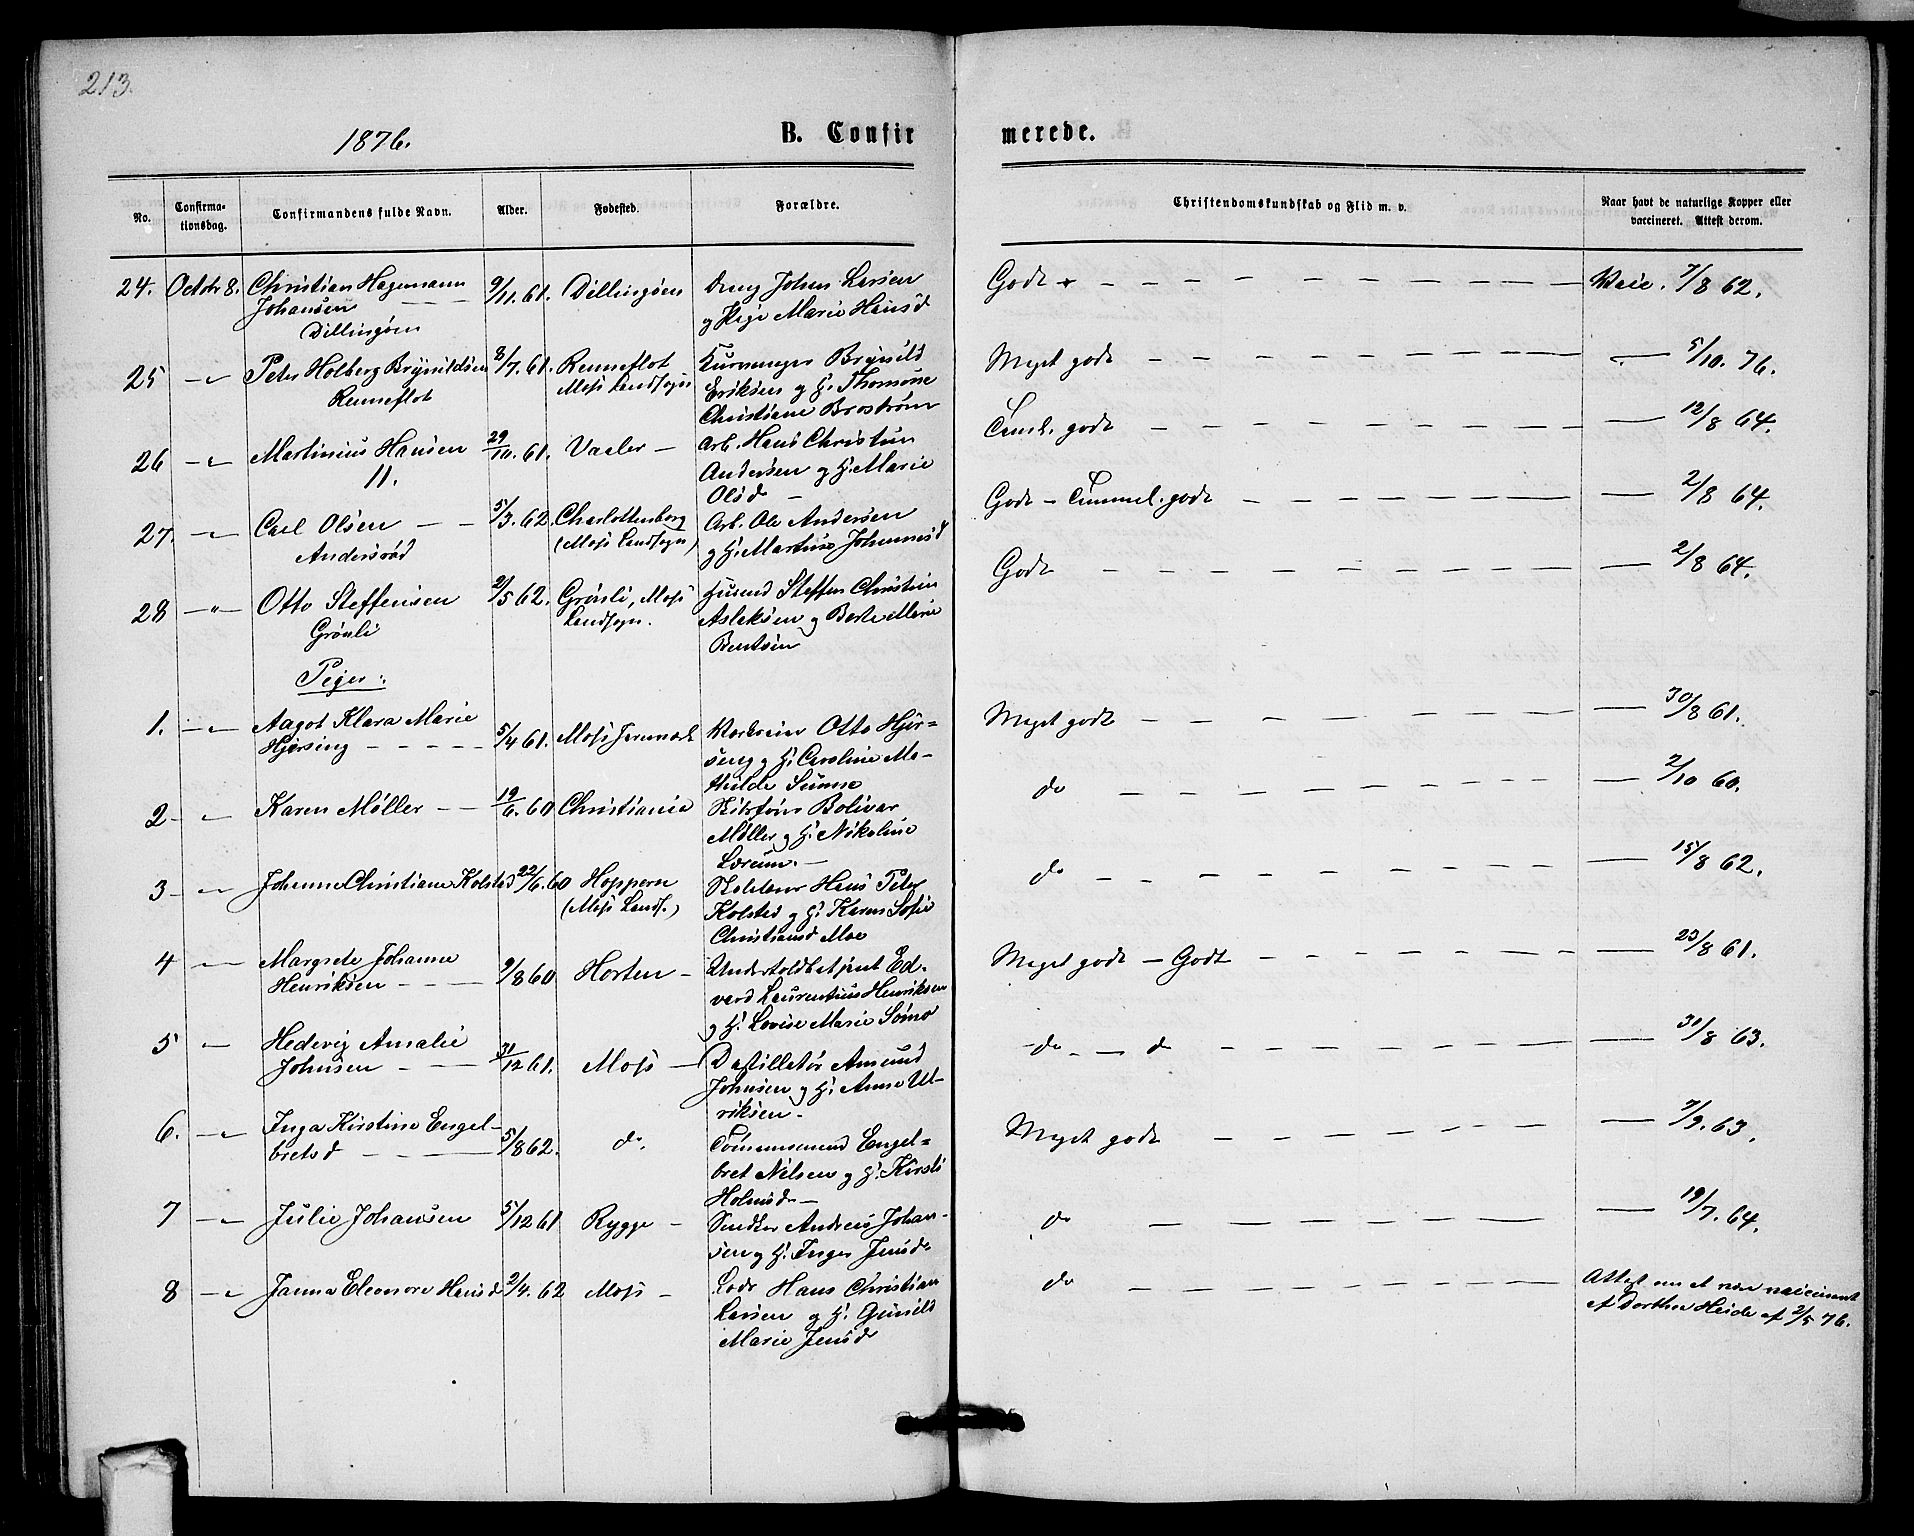 213.
1876.
B. Confirmerede.
No.
Confirma-
tionsdag.
Confirmandens fulde Navn.
Alder.
Fødested.
Forældre.
Christendomskundskab og Flid m. v.
Naar havt de naturlige Kopper eller
vaccineret. Attest derom.
24. Octbr 8. Christian Hagemann 9/11.61. Dillingøen Johan Larsen Godt Vacc. 7/8 62.
Johansen og Pige Marie Hansd
Dillingøen
25 -"- Peter Holberg Brynildsen 8/7.61. Renneflot Brynild Meget godt — 5/10.76.
Renneflot Moss Landsogn Eriksen og H. Thomine
Christiane Brostrøm
26 -"- Martinius Hansen 29/10.61. Vaaler — Arb. Hans Christian Teml. godt — 12/8 64.
11. Andersen og H. Marie
Olsd —
27. -"- Carl Olsen 5/3.62. Charlottenborg Arb. Ole Andersen Godt - Temmel. godt — 2/8 64.
Andersrød (Moss Landsogn) og H. Martine Johannesd
28 -"- Otto Steffensen 2/5 62. Grønli, Moss Husmd Steffen Christian Godt — 2/8 64.
Grønli Landsogn. Aslaksen og Berte Marie
Bentsen
Piger:
1. -"- Aagot Klara Marie Otto Hjør= Meget godt — 30/8 61.
Hjørsing 5/4 61. Moss Jernværk sing og H. Caroline Ma-
thilde Sunne
2 -"- Karen Møller 19/6.60 Christiania Skibsfører Bolivar do — 2/10 60.
Møller og H. Nikoline
Lorum. —
3 -"- Johanne Christiane Kolstad 22/6.60 Hoppern Hans Peter do — 15/8 62.
(Moss Lands.) Kolstad og H. Karen Sofie
Christiansd Moe
4 -"- Margrete Johanne Undertoldbetjent Ed- Meget godt - Godt — 23/8 61.
Henriksen 9/8 60 Horten — vard Laurentius Henriksen
og H. Lovise Marie
5 -"- Hedevig Amalie do — do — 31/8 63.
Johnsen 31/12 61. Moss — Destillatør Amund
Johnsen og H. Anne Ul-
riksen —
6. -"- Inga Kirstine Engel- Meget godt — 7/9.63.
bretsd 5/8 62. do. Tømmermand Engel=
bret Nilsen og H. Kirsti
Holmsd —
7 -"- Julie Johansen 5/12 61 Rygge — Snedker Andreas Johan- do — 19/7.64.
sen og H. Inger Jensd
8 -"- Janna Eleonore Hansd 2/4.62 Moss — Lods Hans Christian do Attest om at være vaccineret
Larsen og H. Gunild af Dorthea Heide af 2/5 76.
Marie Jensd